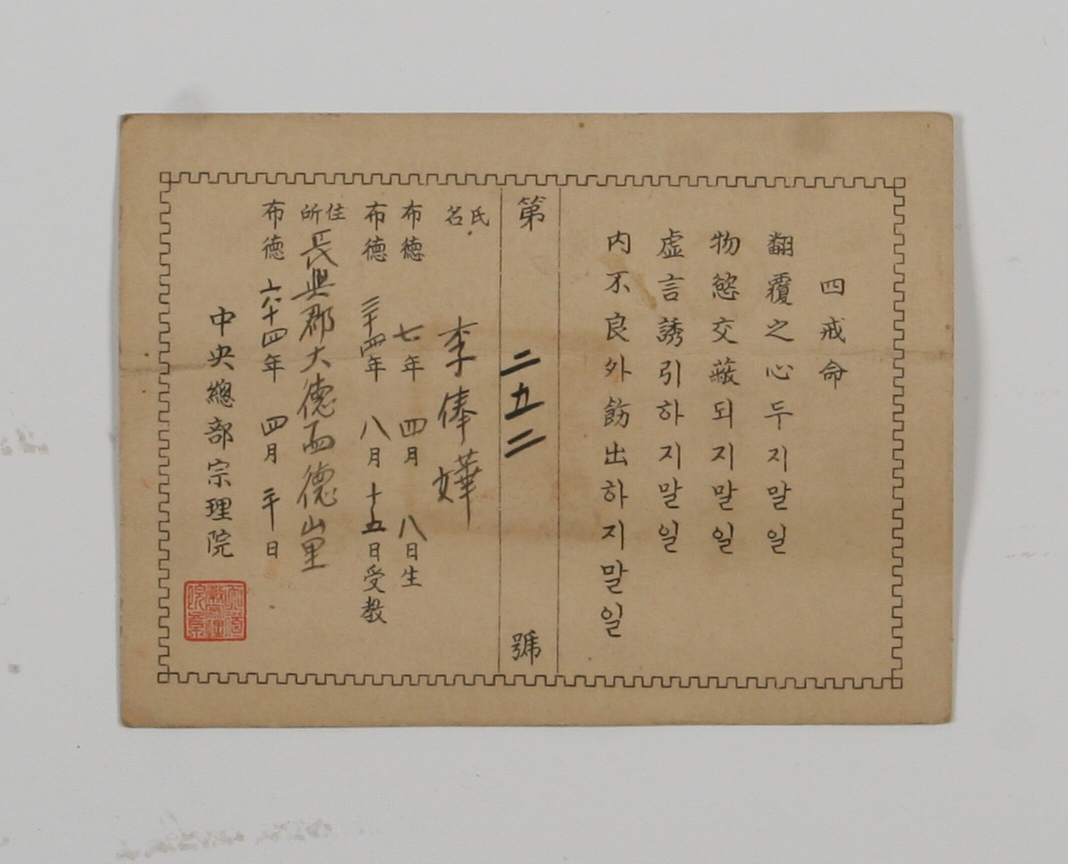 四戒命
翻覆之心두지말일
物慾交蔽되지말일
虛言誘引하지말일
內不良外飭出하지말일
第 二五二 號
氏名 李俸嬅
布德 七年 四月 八日生
布德 三十四年 八月 十五日受教
住所 長興郡大德面德山里
布德 六十四年 四月 二十日
中央總部宗理院